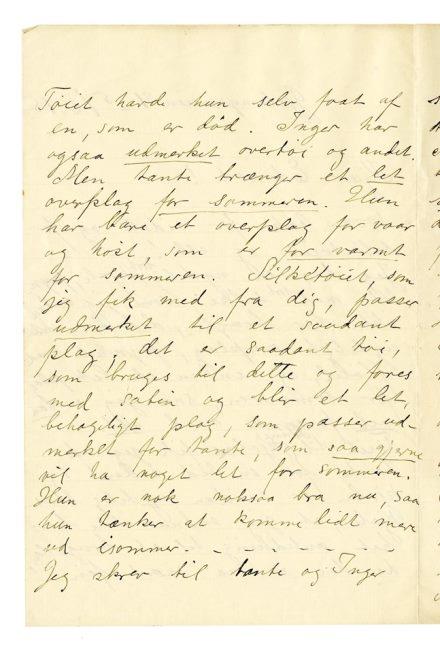 Tøiet havde hun selv faat af
en, som er død. Inger har
ogsaa udmerket overtøi og andet.
Men tante trænger et let
overplag for sommeren. Hun
har bare et overplag for vaar
og høst, som er for varmt
for sommeren. Silketøiet, som
jeg fik med fra dig, passer
udmerket til et saadant
plag, det er saadant tøi,
som bruges til dette og fores
med satin og blir et let,
behageligt plag, som passer ud-
merket for tante, som saa gjerne
vil ha noget let for sommeren.
Hun er nok noksaa bra nu, saa
hun tænker at komme lidt mere
ud isommer. - - - - - - -
Jeg skrev til tante og Inger